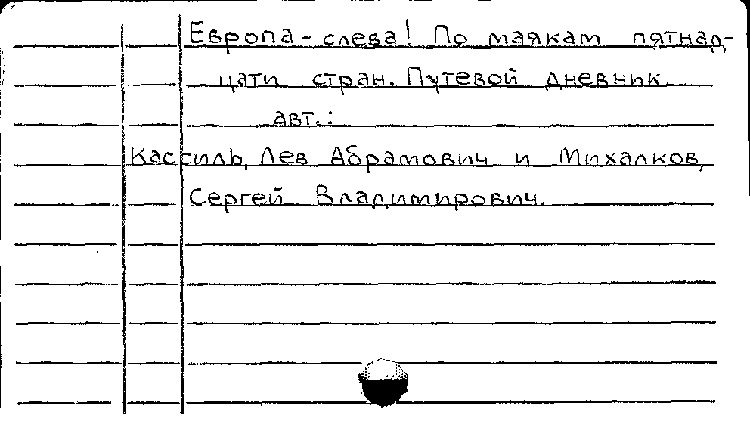 Европа - слева! По маякам пятнад-
цати стран. Путевой дневник.
авт.:
Кассиль, Лев Абрамович и Михалков,
Сергей Владимирович.